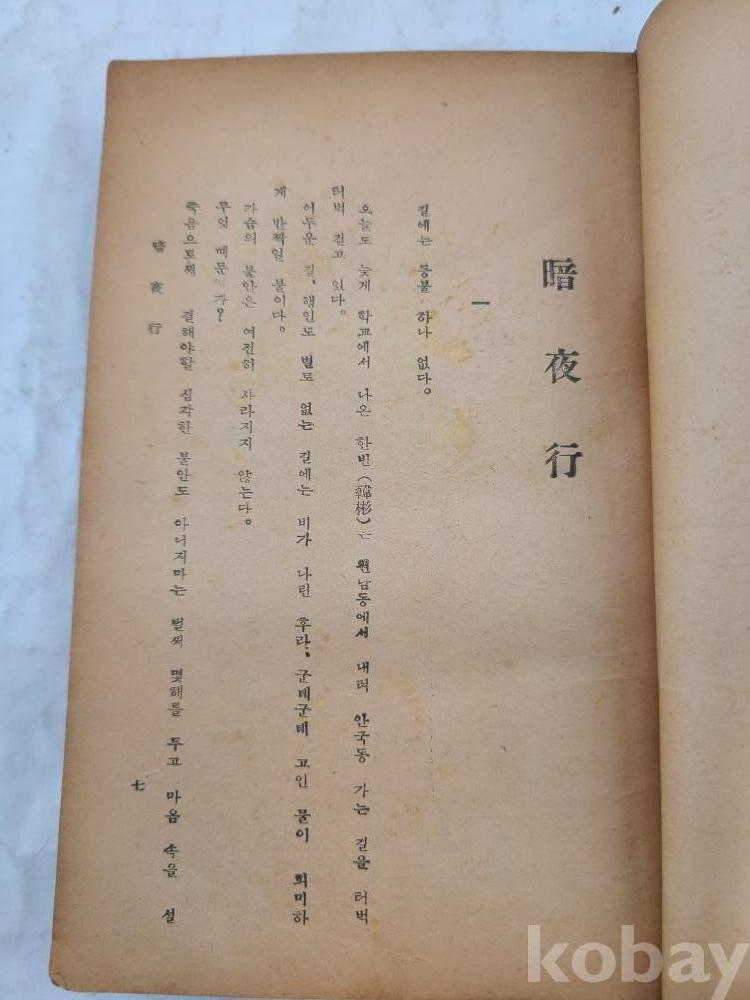 暗夜行
一
길에는 등불 하나 없다。
오늘도 늦게 학교에서 나온 한빈(韓彬)는 원남동에서 내려 안국동 가는 길을 터벅
터벅 걷고 있다。
어두운 길、행인도 별로 없는 길에는 비가 나린 후라、군데군데 고인 물이 희미하
게 반짝일 뿐이다。
가슴의 불안은 여전히 사라지지 않는다。
무엇 때문인가?
죽음으로써 결해야할 심각한 불안도 아니지마는 벌써 몇해를 두고 마음 속을 설
暗夜行
七
kobay